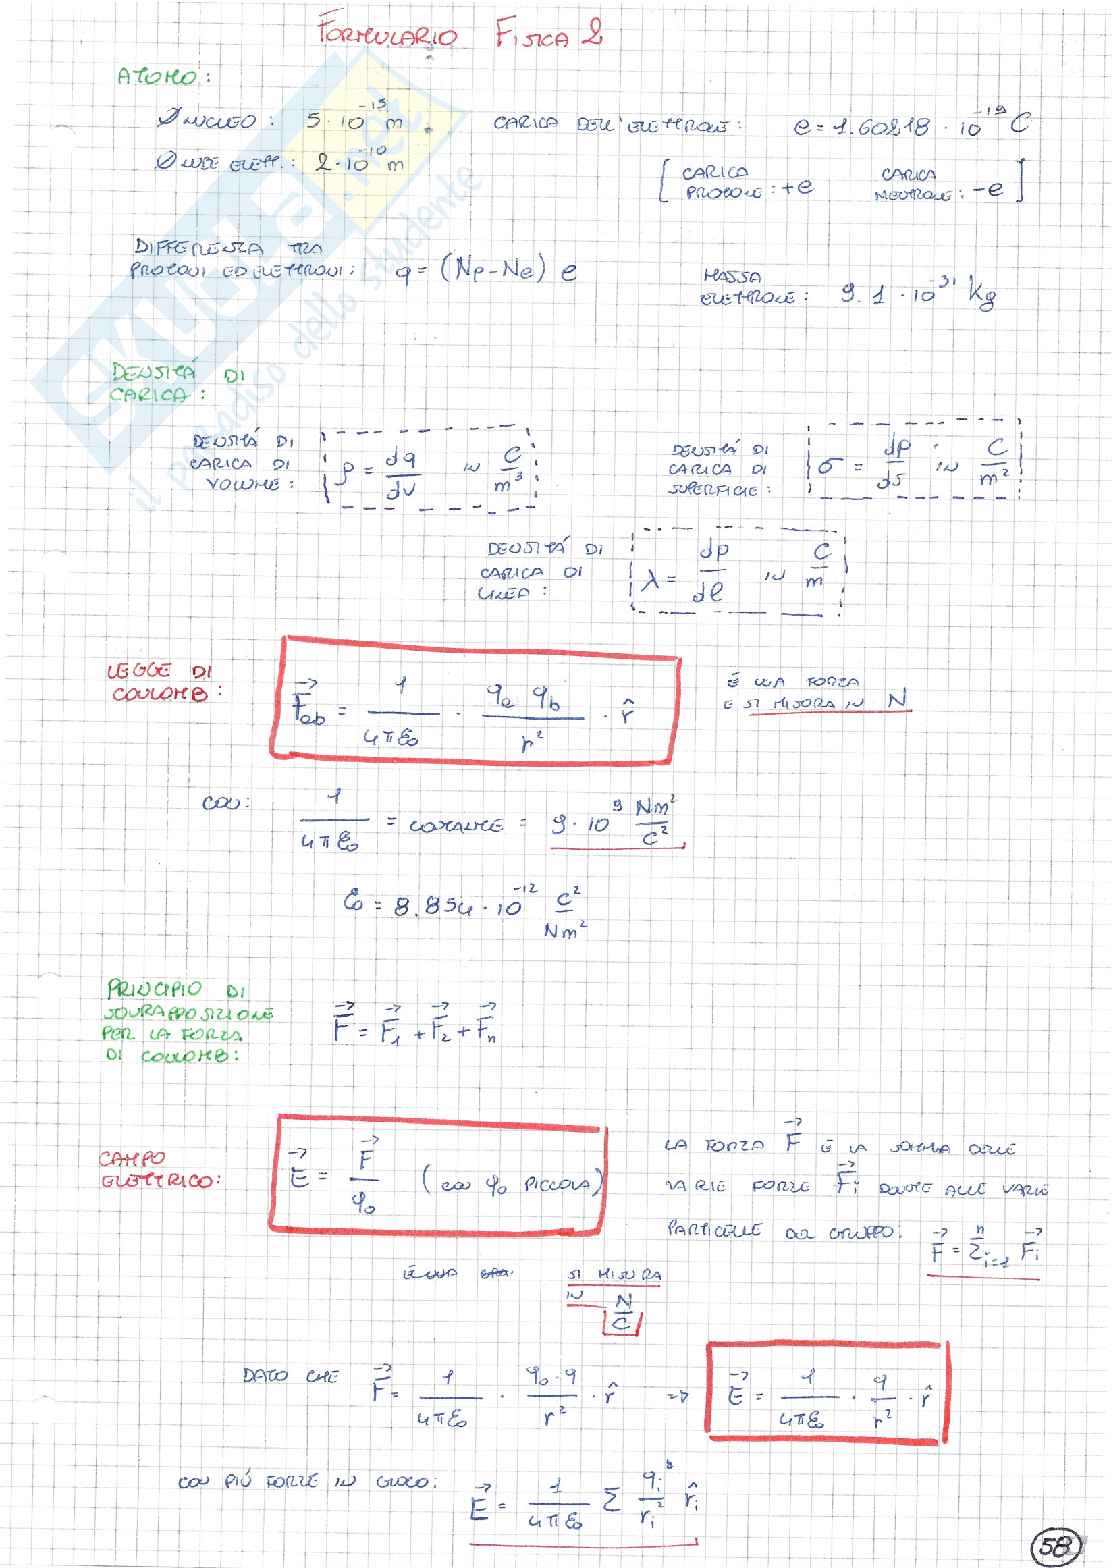 FORMULARIO FISICA 2
ATOMO:
Ø NUCLEO: 5·10⁻¹⁵ m. CARICA DELL'ELETTRONE: e = 1.60218·10⁻¹⁹ C
Ø NUBE ELETT.: 2·10⁻¹⁰ m
[CARICA PROTONE: +e CARICA NEUTRONE: -e]
DIFFERENZA TRA
PROTONI ED ELETTRONI: q = (Np - Ne) e
MASSA
ELETTRONE: 9.1·10⁻³¹ Kg
DENSITÁ DI
CARICA:
DENSITÁ DI
CARICA DI
VOLUME: ρ = dq/dv IN C/m³
DENSITÁ DI
CARICA DI
SUPERFICIE: σ = dρ/ds IN C/m²
DENSITÁ DI
CARICA DI
LINEA: λ = dρ/dℓ IN C/m
LEGGE DI
COULOMB: F⃗ab = 1/4πε₀ · qa qb/r² · r̂
É UNA FORZA
E SI MISURA IN N
CON: 1/4πε₀ = COSTANTE = 9·10⁹ Nm²/C²
ε₀ = 8.854·10⁻¹² C²/Nm²
PRINCIPIO DI
SOVRAPPOSIZIONE
PER LA FORZA
DI COULOMB: F⃗ = F⃗₁ + F⃗₂ + F⃗n
CAMPO
ELETTRICO: E⃗ = F⃗/q₀ (CON q₀ PICCOLA)
LA FORZA F⃗ É LA SOMMA DELLE
VARIE FORZE F⃗i DOVUTE ALLE VARIE
PARTICELLE DEL GRUPPO: F⃗ = Σⁿi=1 F⃗i
É UNA
SI MISURA
IN N/C
DATO CHE F⃗ = 1/4πε₀ · q₀·q/r² · r̂ => E⃗ = 1/4πε₀ · q/r² · r̂
CON PIÚ FORZE IN GIOCO: E⃗ = 1/4πε₀ Σ qi/ri² r̂i
58
SKUOLA.net
il paradiso dello studente